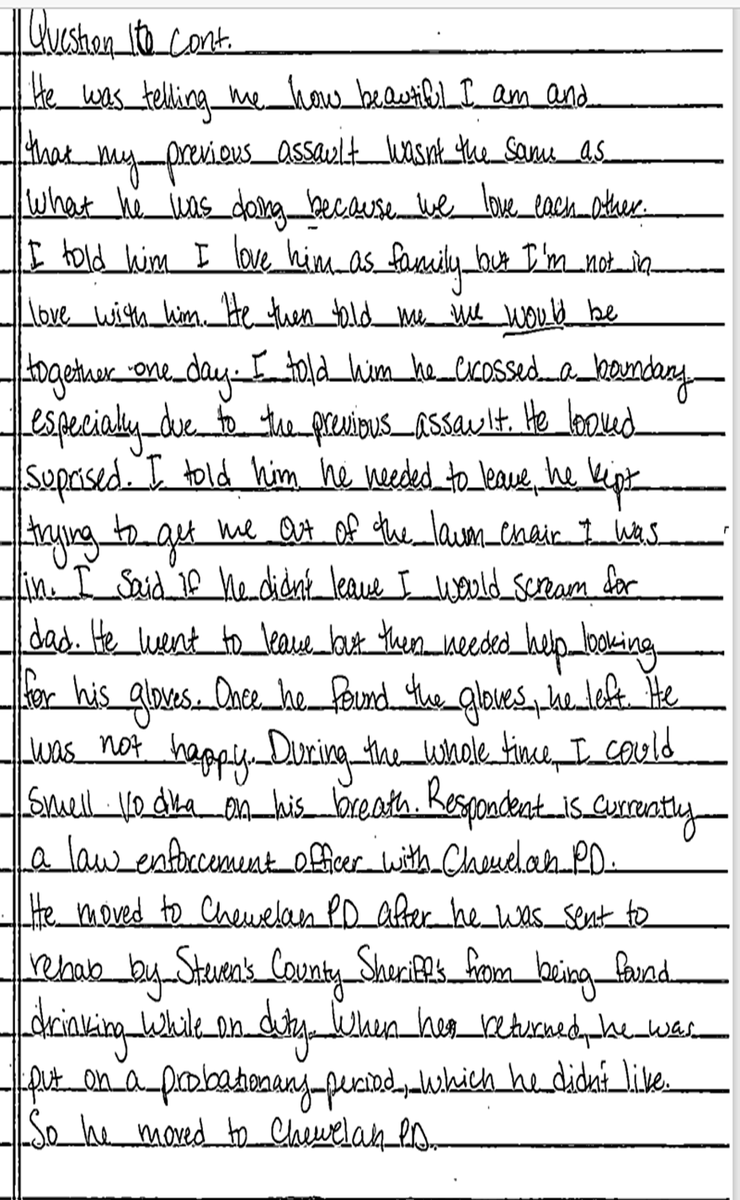 Question 10 cont.
He was telling me how beautiful I am and
that my previous assault wasnt the same as
what he was doing because we love each other.
I told him I love him as family but I'm not in
love with him. He then told me we would be
together one day. I told him he crossed a boundary
especially due to the previous assault. He looked
suprised. I told him he needed to leave, he kept
trying to get me out of the lawn chair I was
in. I said if he didn't leave I would scream for
dad. He went to leave but then needed help looking
for his gloves. Once he found the gloves, he left. He
was not happy. During the whole time, I could
smell vodka on his breath. Respondent is currently
a law enforcement officer with Chewelah PD.
He moved to Chewelah PD after he was sent to
rehab by Steven's County Sheriff's from being found
drinking while on duty. When he returned, he was
put on a probationary period, which he didn't like.
So he moved to Chewelah PD.